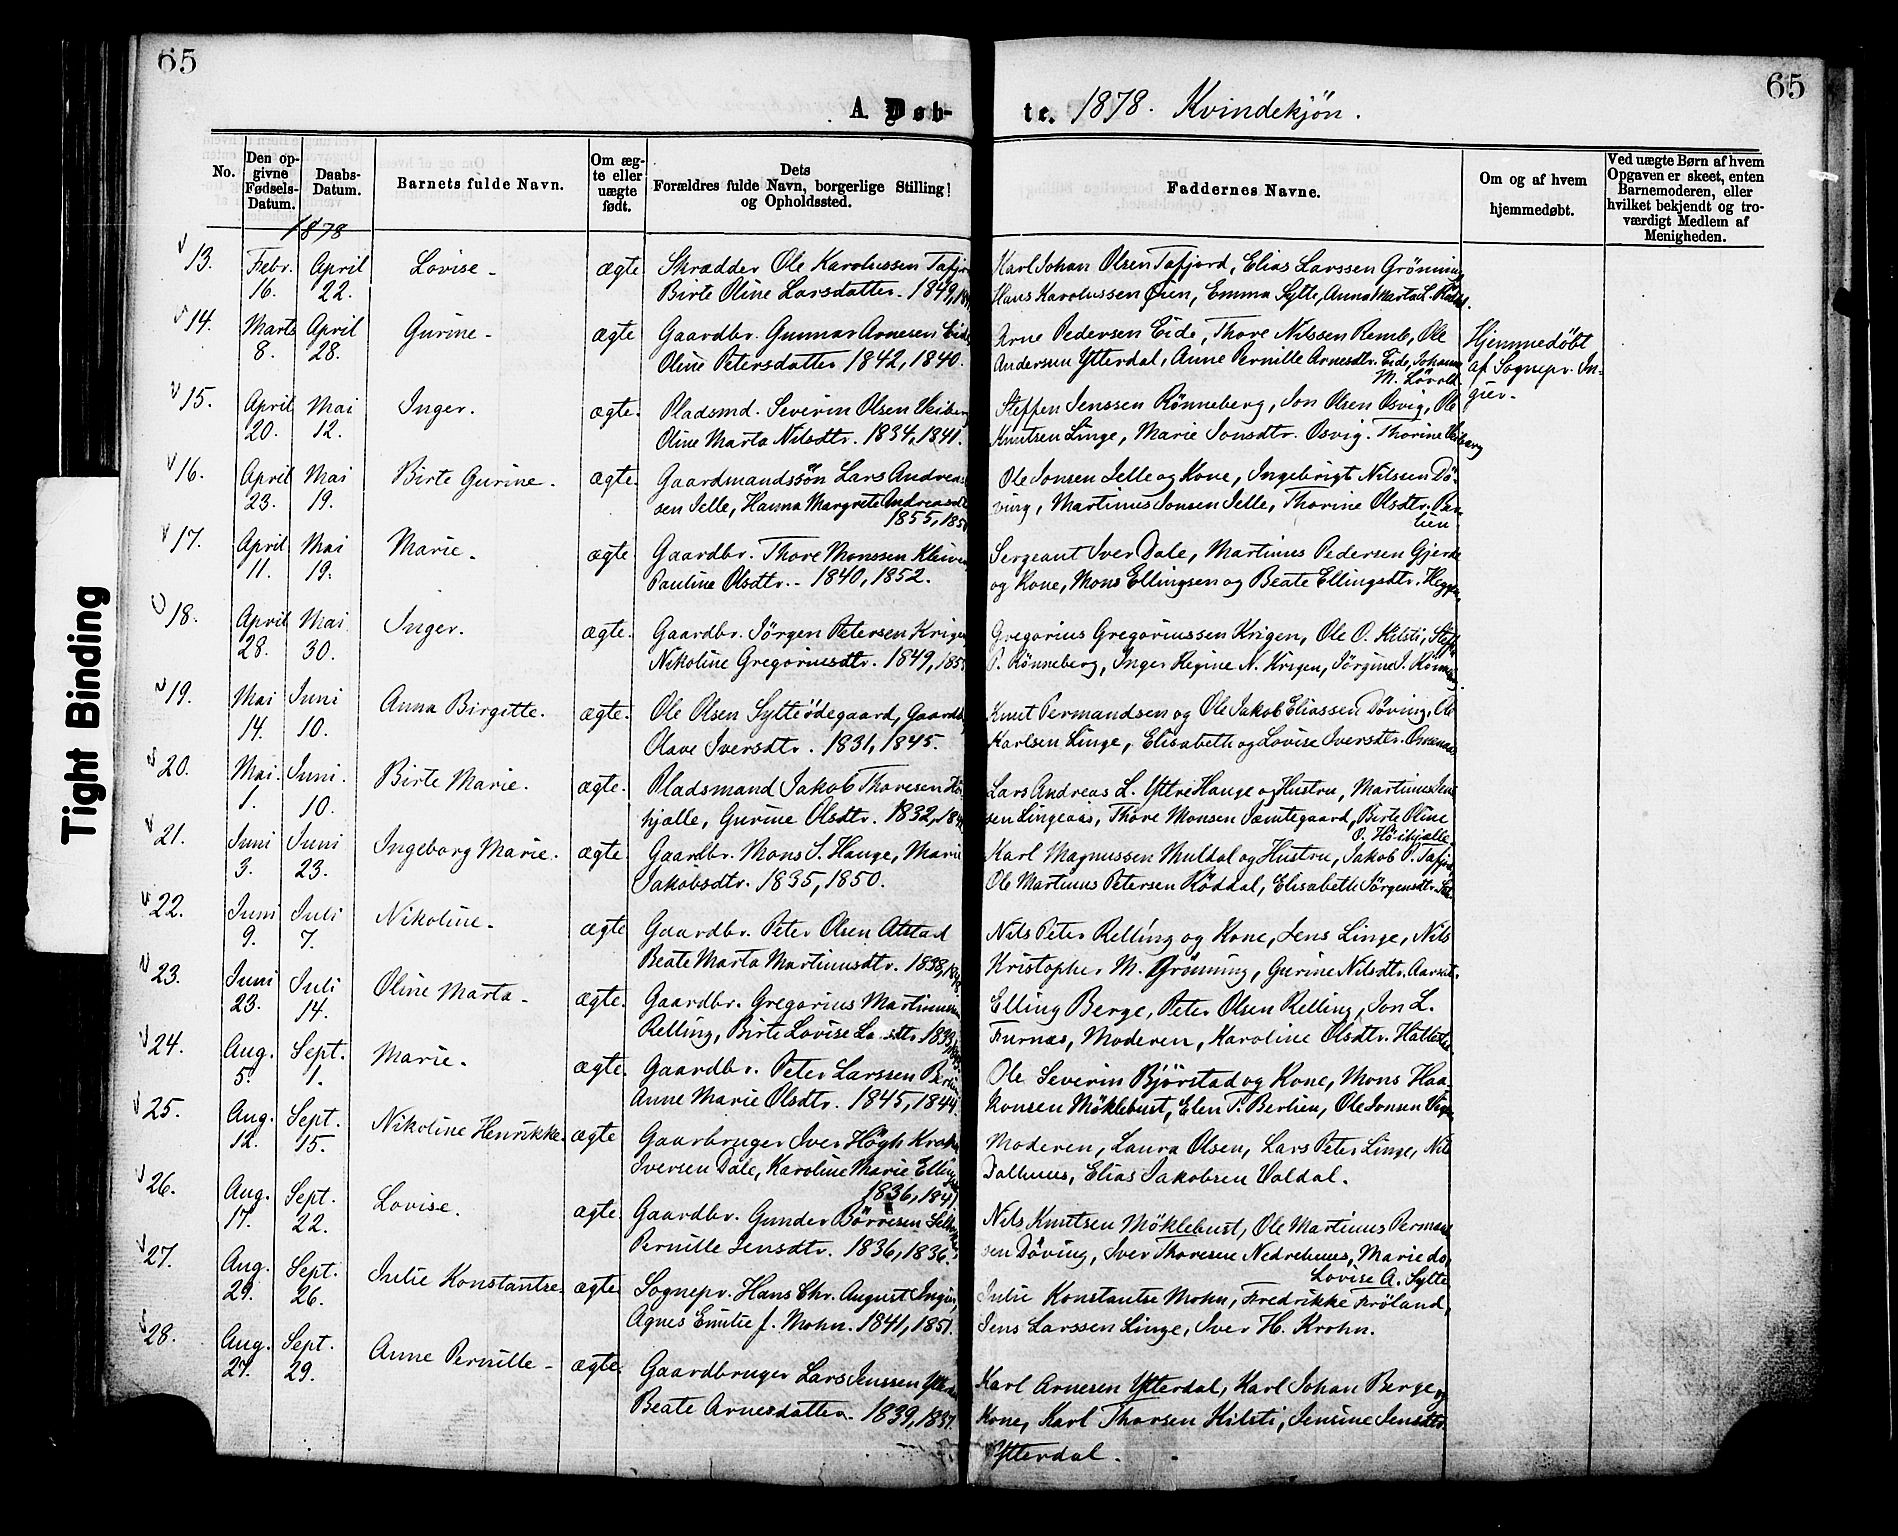 65
65
A. Døb-
te. 1878. Kvindekjön.
No.
Den op-
givne
Fødsels-
Datum.
Daabs-
Datum.
Barnets fulde Navn.
Om æg-
te eller
uægte
født.
Dets
Forældres fulde Navn, borgerlige Stilling
og Opholdssted.
Faddernes Navne.
Om og af hvem
hjemmedøbt.
Ved uægte Børn af hvem
Opgaven er skeet, enten
Barnemoderen, eller
hvilket bekjendt og tro-
værdigt Medlem af
Menigheden.
1878
13. Febr. April Lovise - ægte Skrædder Ole Karolussen Karl Johan Olsen Tafjord, Elias Larssen Grönning
16. 22. Birte Oline Larsdatter. 1849, Hans Karolussen Öien, Emma Sylte, Anna Marta L.
14. Marts April Gurine - ægte Gaardbr. Gunnar Arnesen Eide Arne Pedersen Eide, Thore Nilssen Remb, Ole Hjemmedöbt
8. 28. Oline Petersdatter 1842, 1840. Andersen Ytterdal, Anne Pernille Arnesdtr. Eide, Johanne af Sognepr. In-
M. Lövold. gier.
15. April Mai Inger. ægte. Pladsmd. Severin Olsen Steffen Jenssen Rönneberg, Jon Olsen Osvig, Ole
20. 12. Oline Marta Nilsdtr. 1834, 1841. Knutsen Linge, Marie Jonsdtr. Osvig. Thorine
16. April Mai Birte Gurine. ægte. Gaardmandssön Lars Andreas- Ole Jonsen Selle og Kone, Ingebrigt Nilssen Dö-
23. 19. sen Selle, Hanna Margrete Andreasdtr. ving, Martinus Jonsen Selle, Thorine Olsdtr. Ber-
1855, lien
17. April Mai Marie. ægte Gaardbr. Thore Monssen Kleiven Sergeant Iver Dale, Martinus Pedersen Gjerde
11. 19. Pauline Olsdtr. - 1840, 1852. og Kone, Mons Ellingsen og Beate Ellingsdtr.
18. April Mai Inger. ægte. Gaardbr. Jörgen Petersen Krigen Gregorius Gregoriussen Krigen, Ole O. Kilsti,
28. 30. Nikoline Gregoriusdtr. 1849, P. Rönneberg, Inger Regine N. Krigen, Jörgine J.
19. Mai Juni Anna Birgitte. ægte. Ole Olsen Sylteödegaard, Knut Permandsen og Ole Jakob Eliassen Döving, Ole
14. 10. Olave Iversdtr. 1831, 1845. Karlsen Linge, Elisabeth og Lovise Iversdtr.
20. Mai Juni Birte Marie. ægte. Pladsmand Jakob Thoresen Höi- Lars Andreas L. Yttre Hauge og Hustru, Martinus Jens-
1. 10. hjalle, Gurine Olsdtr. 1832, sen Lingeaas, Thore Monsen Jemtegaard, Birte Oline
O. Höihjalle
21. Juni Juni Ingeborg Marie. ægte Gaardbr. Mons S. Hauge, Marie Karl Magnussen Muldal og Hustru, Jakob P. Tafjord
3. 23. Jakobsdtr. 1835, 1850. Ole Martinus Petersen Röddal, Elisabeth Jörgensdtr.
22. Juni Juli Nikoline. ægte Gaardbr. Peter Olsen Alstad Nils Peter Relling og Kone, Jens Linge, Nils
9. 7. Beate Marta Martinusdtr. 1838, Kristopher M. Grönning, Gurine Nilsdtr.
23. Juni Juli Oline Marta - ægte. Gaardbr. Gregorius Martinussen Elling Berge, Peter Olsen Relling, Jon L.
23. 14. Relling, Birte Lovise 1839, Furnæs, Moderen, Karoline Olsdtr.
24. Aug. Sept. Marie. ægte. Gaardbr. Peter Larssen Berlien Ole Severin Bjørstad og Kone, Mons Haa-
5. 1. Anne Marie Olsdtr. 1845, 1844. konsen Möklebust, Elen T. Berlien, Ole Jonsen
25. Aug. Sept. Nikoline Henrikke. ægte Gaarbruger Iver Högh Krohn Moderen, Laura Olsen, Lars Peter Linge, Nils
12. 15. Iversen Dale, Karoline Marie Dalhuus, Elias Jakobsen Valdal.
1836, 1841.
26. Aug. Sept. Lovise. ægte. Gaardbr. Gunder Börresen Nils Knutsen Möklebust, Ole Martinus Permand-
17. 22. Pernille Jensdtr. 1836, 1836. sen Döving, Iver Thoresen Nedrehuus, Marie do,
Lovise A. Sylte
27. Aug. Sept. Julie Konstantse. ægte. Sognepr. Hans Chr. August Ingier, Julie Konstantse Mohn, Fredrikke Fröland,
29. 26. Agnes Emilie f. Mohn. 1841, 1851. Jens Larssen Linge, Iver H. Krohn.
28. Aug. Sept. Anne Pernille - ægte. Gaardbruger Lars Jenssen Ytterdal Karl Arnesen Ytterdal, Karl Johan Berge og
27. 29. Beate Arnesdatter. 1839, 1837. Kone, Karl Thorsen Kilsti, Jensine Jensdtr.
Ytterdal.
Tight Binding